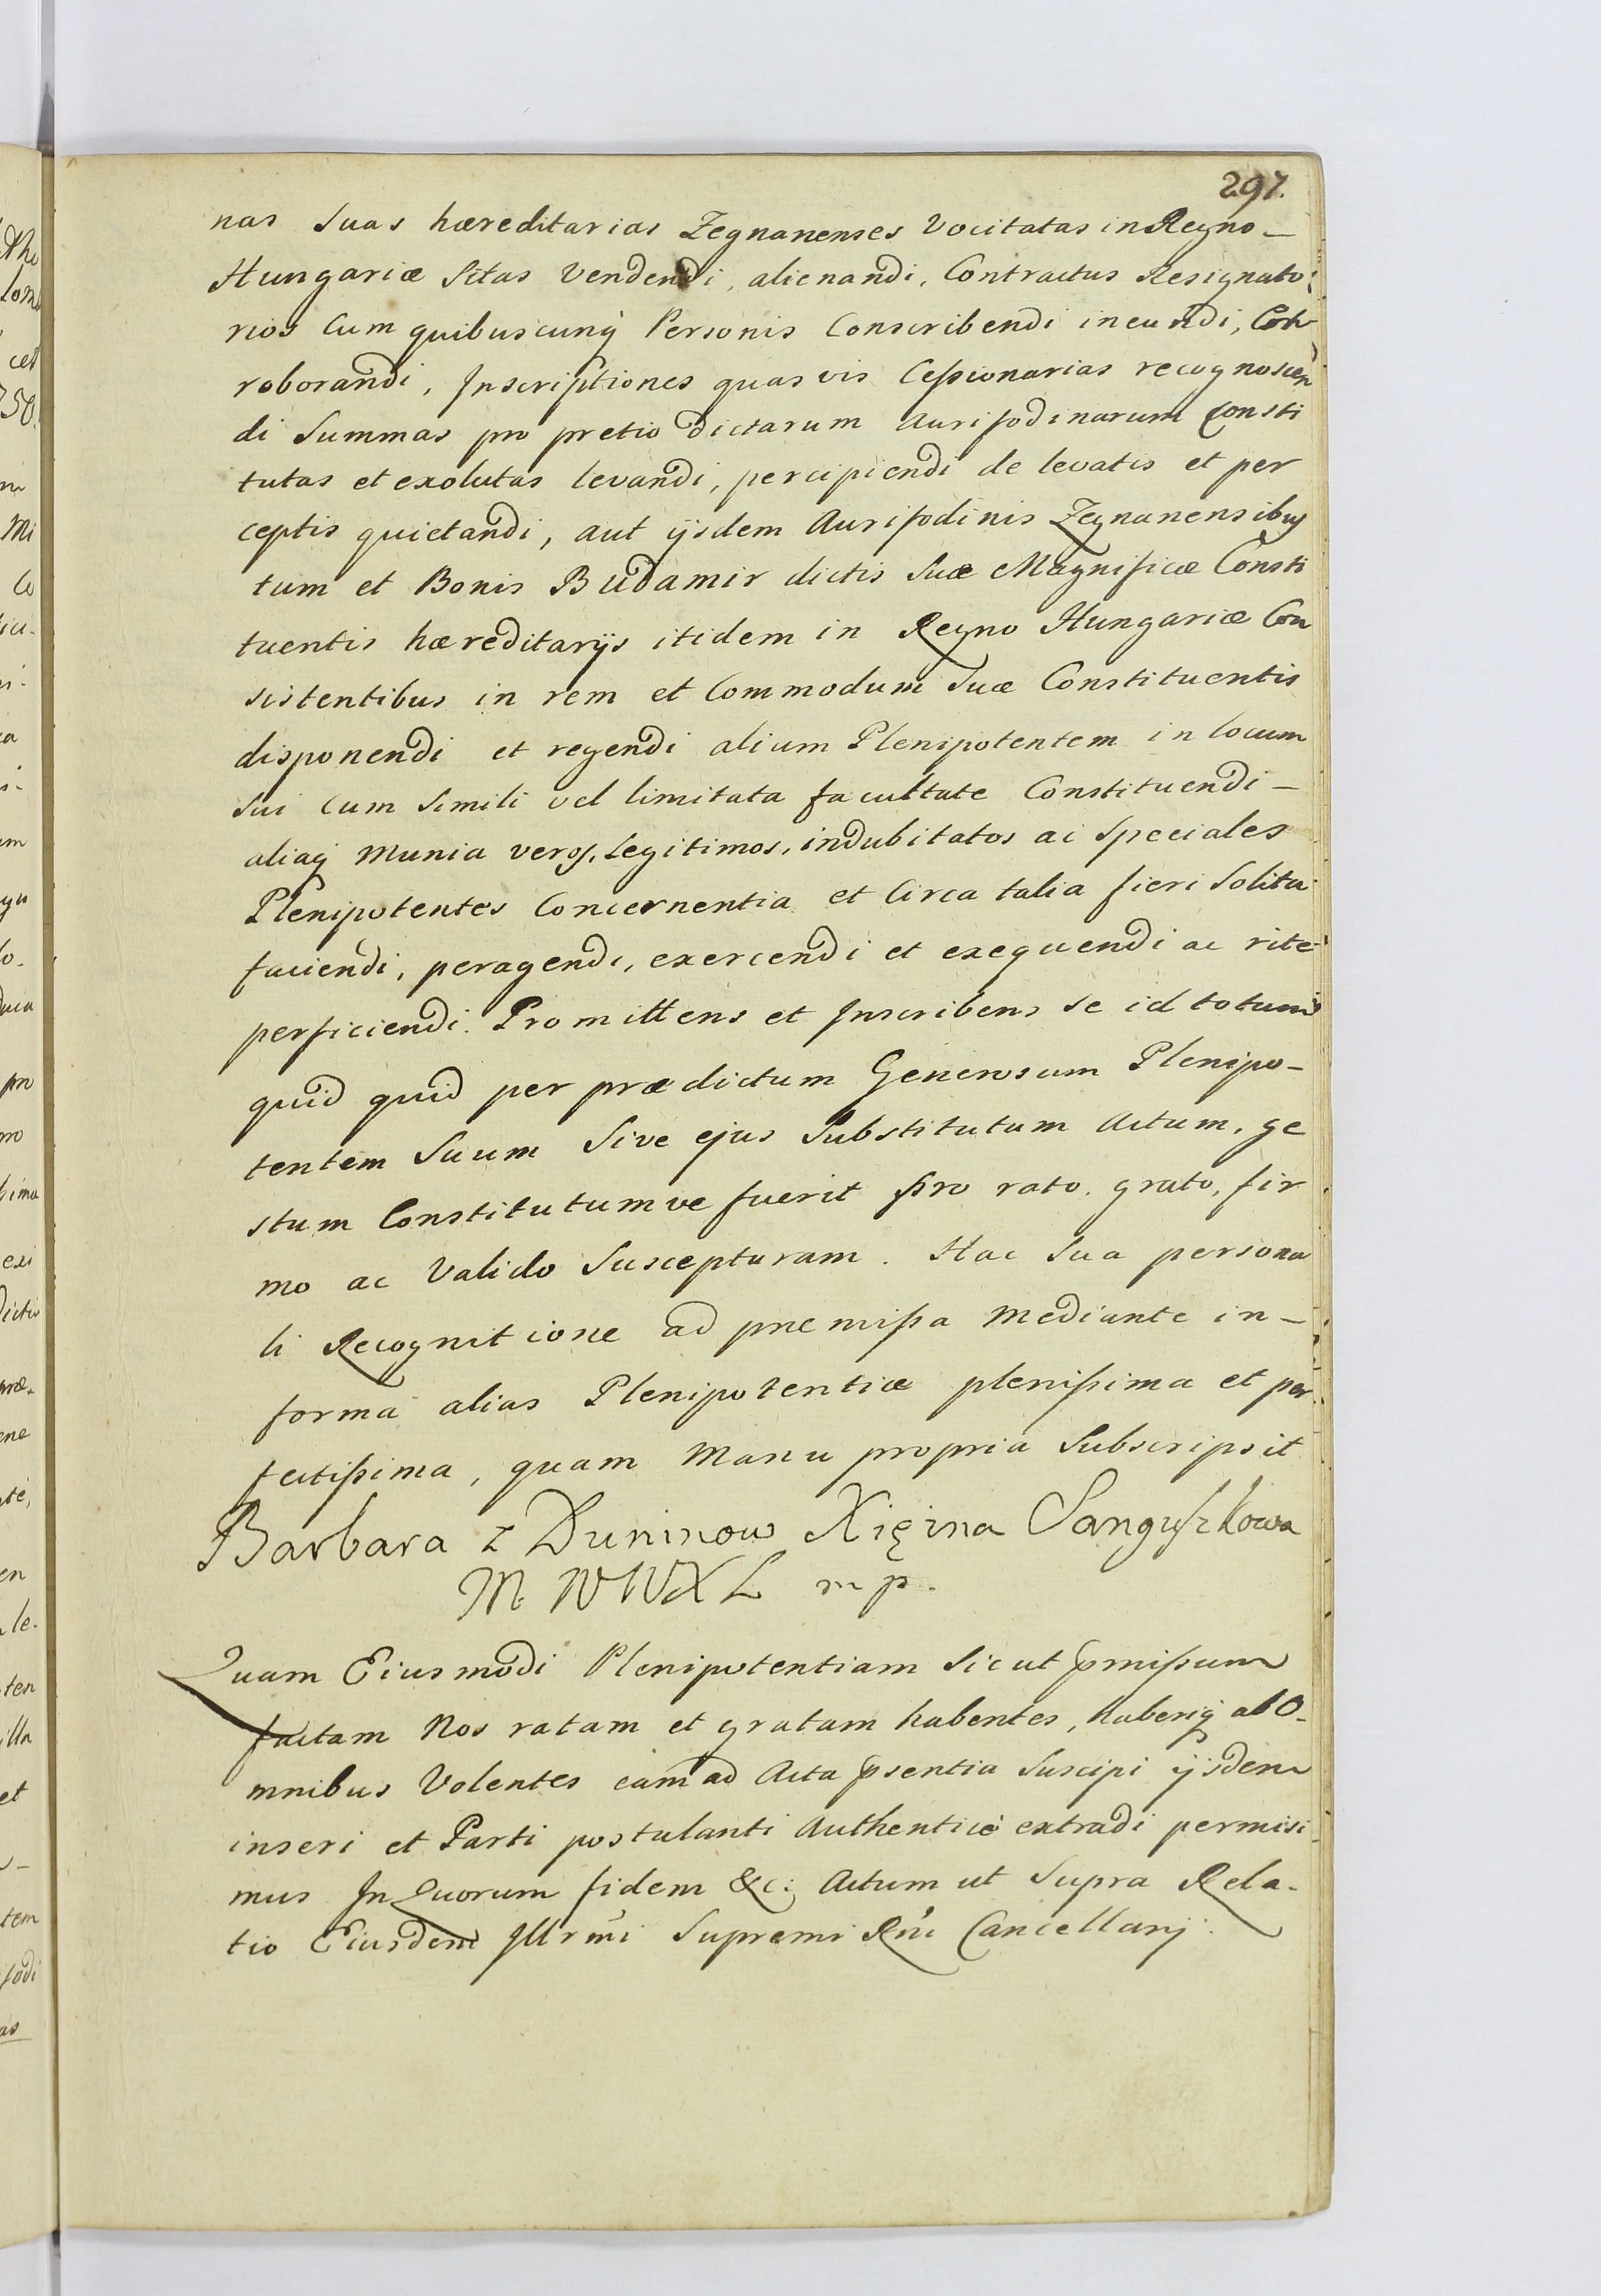 297.
nas Suas hæreditarias Zegnanenses Vocitatas in Regno –
Hungariæ Sitas Vendendi, alienandi, Contractus Resignato:
rios Cum quibuscunq Personis Conscribendi ineundi, Cor
roborandi, Inscriptiones quasvis Ceßionarias recognoscen
di Summas pro pretio dictarum Aurifodinarum Consti
tutas et exolutas levandi, percipiendi de levatis et per
ceptis quietandi, aut ijsdem Aurifodinis Zegnanensibus
tum et Bonis Budamir dictis Suæ Magnificæ Consti
tuentis hæreditarijs itidem in Regno Hungariæ Con
sistentibus in rem et Commodum Suæ Constituentis
disponendi et regendi alium Plenipotentem in locum
Sui Cum Simili vel limitata facultate Constituendi –
aliaq Munia veros, Legitimos, indubitatos ac Speciales
Plenipotentes Concernentia et Circa talia fieri Solita
faciendi, peragendi, exercendi et exequendi ac rite
perficiendi. Promittens et Inscribens se id totum
quid quid per prædictum Generosum Plenipo-
tentem Suum Sive ejus Substitutum Actum, ge
stum Constitutumve fuerit pro rato, grato, fir
mo ac Valido Suscepturam. Hac Sua persona
li Recognitione ad præmißa Mediante in –
forma alias Plenipotentiæ plenißima et per
fectißima, quam Manu propria Subscripsit
Barbara z Duninow Xięzna Sanguszkowa
M. W W X L mp.
Quam Eiusmodi Plenipotentiam Sicut pmißum
factam Nos ratam et gratam habentes, haberiq ab O-
mnibus Volentes eam ad Acta psentia Suscipi ijsdem
inseri et Parti postulanti Authenticè extradi permisi
mus In Quorum fidem &c: Actum ut Supra Rela-
tio Eiusdem Illrmi Supremi Rni Cancellarij.